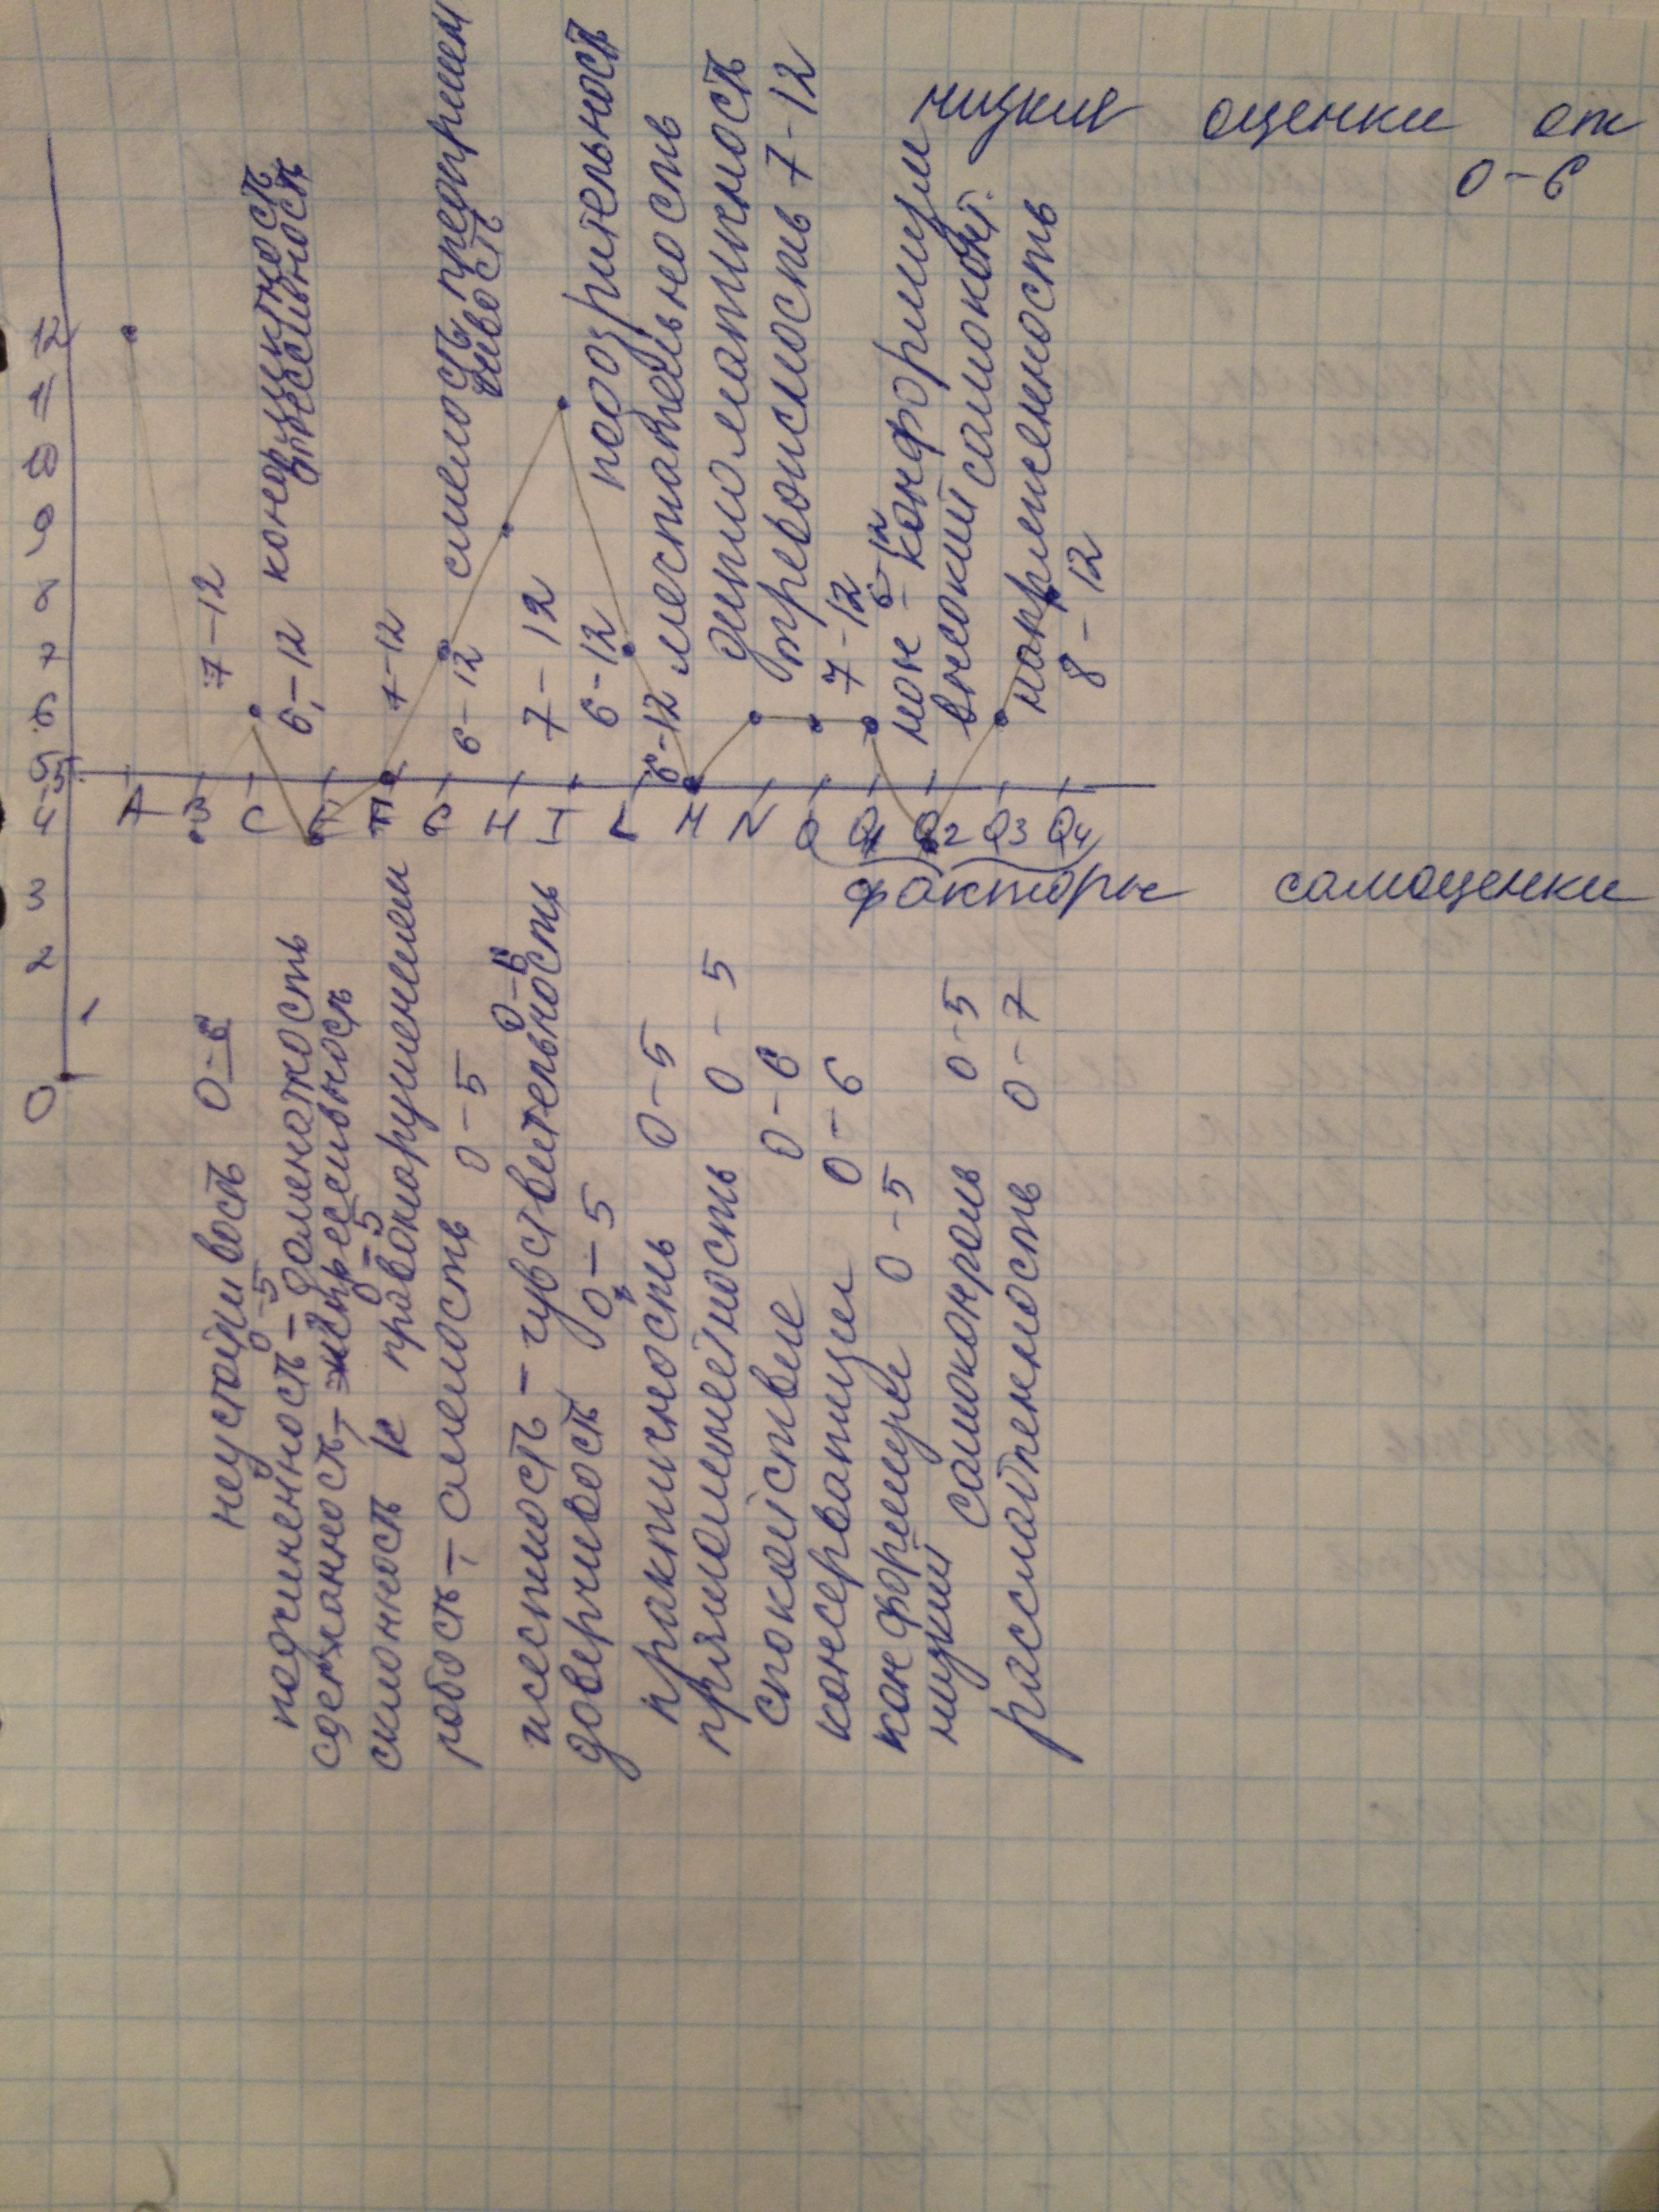 0 2 3 4 5 6 7 8 9 10 11 12
1
5,5
A
B
неустойчивость 0-6 C 7-12
подчиненность - доминатность 0-5 E 6-12 конфликтность агрессивность
сдержанность - экспрессивность 0-5 F 7-12
склонность к правонарушениям
робость - смелость 0-5 G 6-12 смелость, предприим чивость
жесткость - чувствительность 0-6 H 7-12
доверчивость 0-5 I 6-12 подозрительность
L
практичность 0-5 M 6-12 мечтательность
прямолинейность 0-5 N дипломатичность
спокойствие 0-6 O тревожность 7-12
консерватизм 0-6 Q1 7-12
конформизм 0-5 Q2 нон - конформизм 6-12
низкий самоконтроль 0-5 Q3 высокий самоконт.
расслабленность 0-7 Q4 напряженность 8-12
факторы самооценки
низкие оценки от 0-6